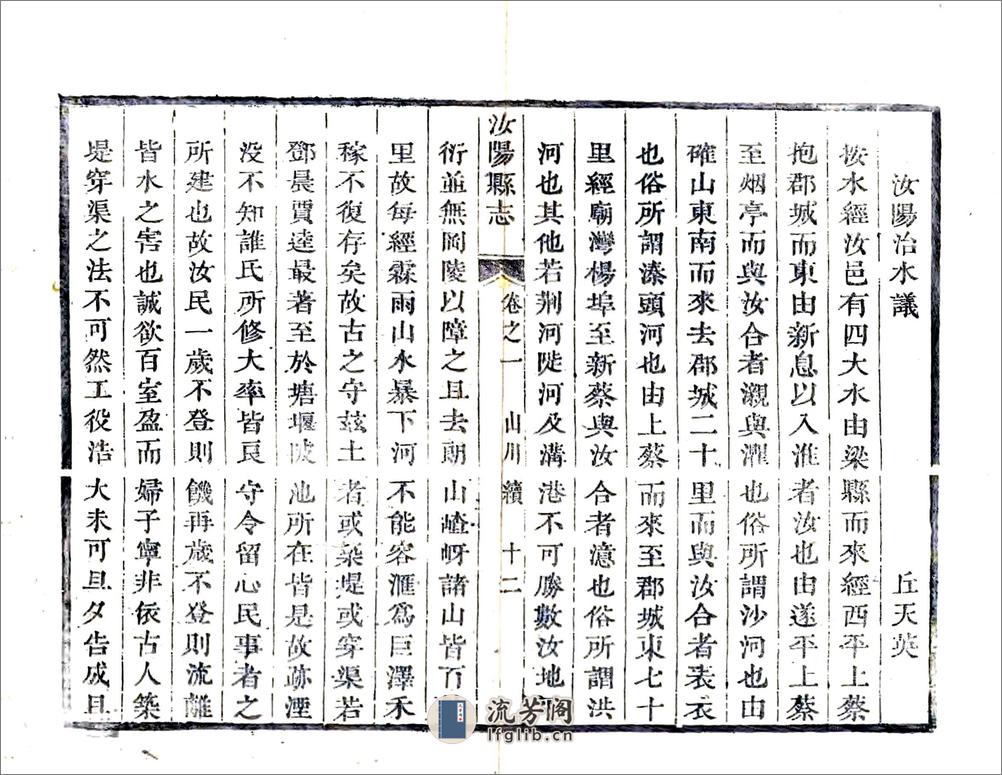 汝陽治水議 丘天英
按水經汝邑有四大水由梁縣而來經西平上蔡
抱郡城而東由新息以入淮者汝也由遂平上蔡
至烟亭而與汝合者瀙與灈也俗所謂沙河也由
確山東南而來去郡城二十里而與汝合者
也俗所謂溱頭河也由上蔡而來至郡城東七十
里經廟灣楊埠至新蔡與汝合者澺也俗所謂洪
河也其他若荆河陡河及溝港不可勝數汝地
汝陽縣志 卷之一 山川 續 十二
衍並無岡陵以障之且去朗山嵖岈諸山皆百
里故每經霖雨山水暴下河不能容滙爲巨澤禾
稼不復存矣故古之守兹土者或築堤或穿渠若
鄧晨賈逵最著至於塘堰陂池所在皆是故跡湮
没不知誰氏所修大率皆良守令留心民事者之
所建也故汝民一歲不登則饑再歲不登則流離
皆水之害也誠欲百室盈而婦子寧非依古人築
堤穿渠之法不可然工役浩大未可旦夕告成且
流芳阁
lfglib.cn